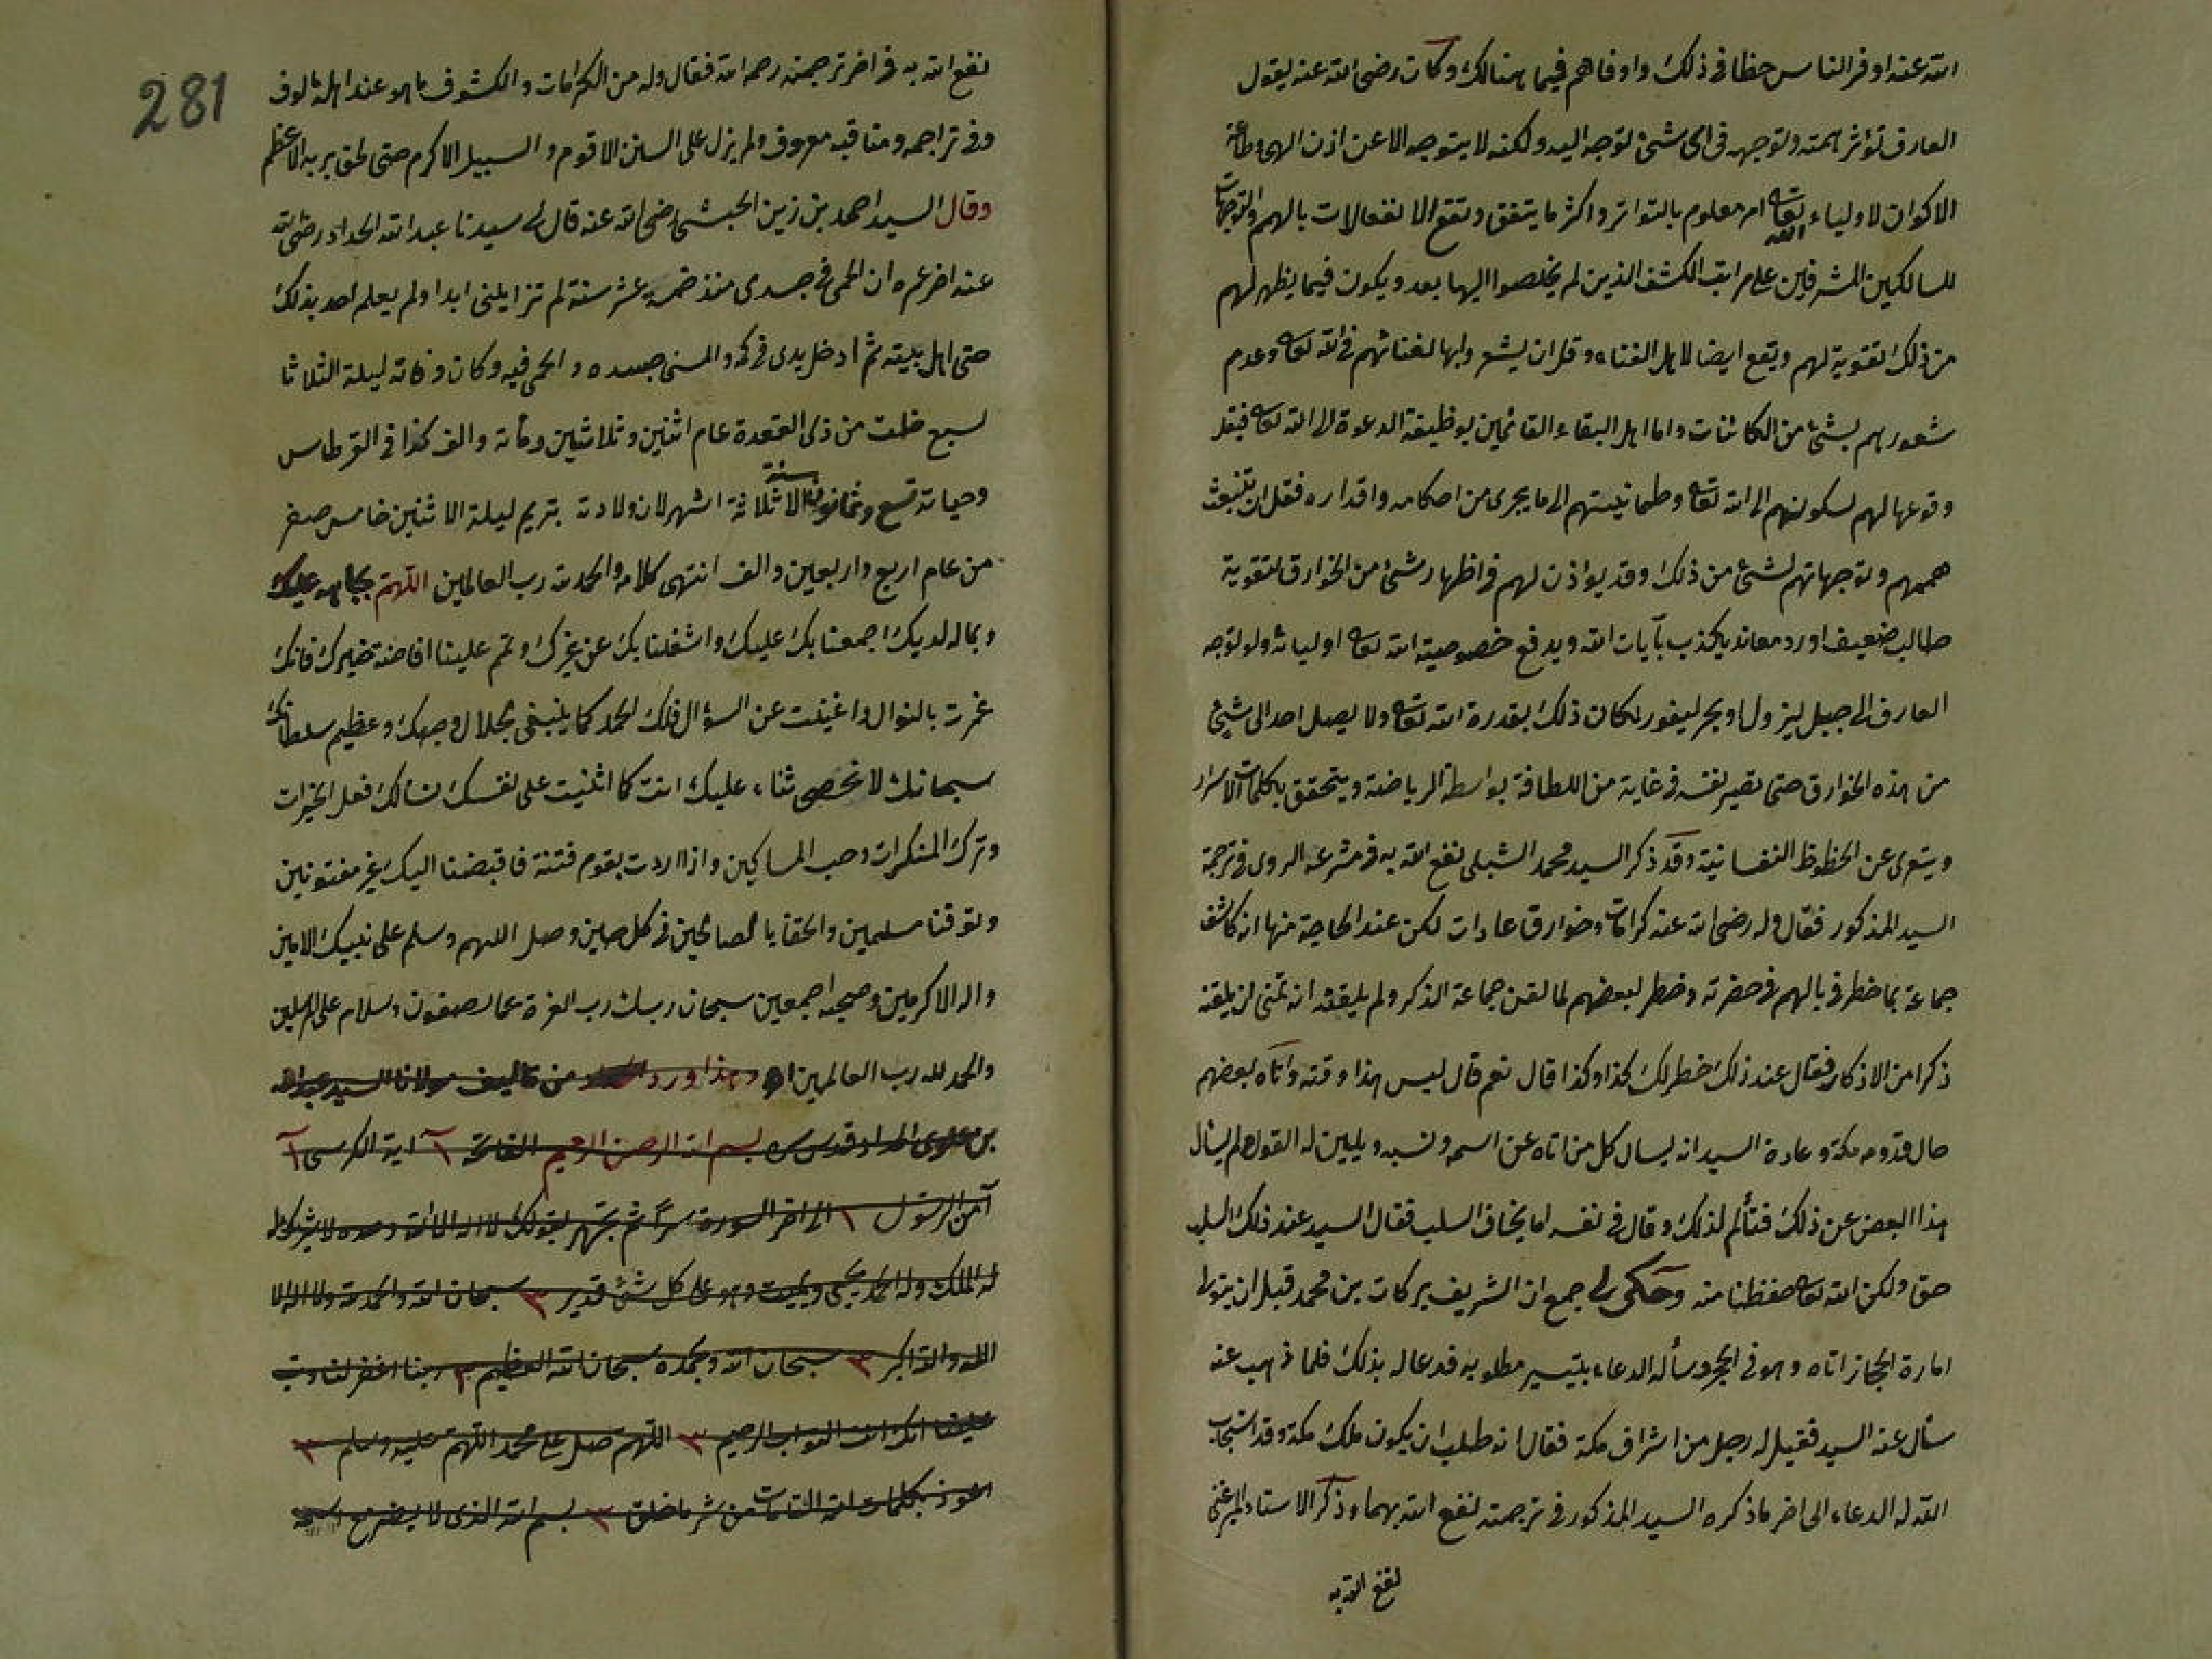 الله عنه اوفر الناس حظا في ذلك واوفاهم فيما هنالك وكان رضي الله عنه يقول
العارف تؤثر همته وتوجهه في اي شئ توجه اليه ولكنه لا يتوجه الا عن اذن الهي وطاعة
الاكوان لاولياء الله تعالى امر معلوم بالتواتر واكثر ما يتفق وتقع الانفعالات بالهمم والتوجهات
للسالكين المشرفين على مراتب الكشف الذين لم يخلصوا اليها بعد ويكون فيما يظهر لهم
من ذلك تقوية لهم ويقع ايضا لاهل الفناء وقل ان يشعروا بها لفنائهم في الله تعالى وعدم
شعورهم بشئ من الكائنات واما اهل البقاء القائمين بوظيفة الدعوة الى الله تعالى فيقل
وقوعها لهم لسكونهم الى الله تعالى وطمانينتهم الى ما يجري من احكامه واقداره فقل ان تنبعث
هممهم وتوجهاتهم لشئ من ذلك وقد يؤاذن لهم في اظهار شئ من الخوارق لتقوية
طالب ضعيف او رد معاند يكذب بآيات الله ويدفع خصوصية الله تعالى اوليائه ولو توجه
العارف الى جبل ليزول او بحر ليغور لكان ذلك بقدرة الله تعالى ولا يصل احد الى شيئ
من هذه الخوارق حتى تصير نفسه في غاية من اللطافة بواسطة الرياضة ويتحقق بكلمات الاسرار
ويتعرى عن الحظوظ النفسانية وقد ذكر السيد محمد الشبلي نفع الله به في مشرعه الروي في ترجمة
السيد المذكور فقال وله رضي الله عنه كرامات وخوارق عادات لكن عند الحاجة منها انه كاشف
جماعة بما خطر في بالهم في حضرته وخطر لبعضهم لما لقن جماعة الذكر ولم يلقنه انه تمنى لن يلقنه
ذكرا من الاذكار فقال عند ذلك خطر لك كذا وكذا قال نعم قال ليس هذا وقته واتاه بعضهم
حال قدومه مكة وعادة السيد انه يسال كل من اتاه عن اسمه ونسبه ويليين له القول فلم يسأل
هذا البعض عن ذلك فتألم لذلك وقال في نفسه اما يخاف السلب فقال السيد عند ذلك السلب
حق ولكن الله تعالى حفظنا منه وحكى لي جمع ان الشريف بركات بن محمد قبل ان يتولى
امارة الحجاز اتاه وهو في الحجر وسأله الدعاء بتيسير مطلوبه فدعا له بذلك فلما ذهب عنه
سأل عنه السيد فقيل له رجل من اشراف مكة فقال انه طلب ان يكون ملك مكة وقد استجاب
الله له الدعاء الى اخر ما ذكره السيد المذكور في ترجمته نفع الله بهما وذكر الاستاد الميرغني
نفع الله به
281
نفع الله به في اخر ترجمته رحمه الله فقال وله من الكرامات والكشوف ما هو عند اهله مألوف
وفي تراجمه ومناقبه معروف ولم يزل على السنن الاقوم والسبيل الاكرم حتى لحق بربه الاعظم
وقال السيد احمد بن زين الحبشي رضي الله عنه قال لي سيدنا عبد الله الحداد رضي الله
عنه اخر عمره ان الحمى في جسدي منذ خمسة عشر سنة لم تزايلني ابدا ولم يعلم احد بذلك
حتى اهل بيته ثم ادخل يدي في كمه والمسني جسده والحمى فيه وكان وفاته ليلة الثلاثا
لسبع خلت من ذي القعدة عام اثنين وثلاثين ومأته والف كذا في القرطاس
وحياته تسع وثمانون سنة الا ثلاثة اشهر لان ولادته بتريم ليلة الاثنين خامس صفر
من عام اربع واربعين والف انتهى كلامه والحمد لله رب العالمين اللهم بجاهه عليك
وبماله لديك اجمعنا بك عليك واشغلنا بك عن غيرك وتمم علينا افاضة خيرك فانك
غمرت بالنوال واغنيت عن السؤال فلك الحمد كما ينبغي بجلال وجهك وعظيم سلطانك
سبحانك لا نحصي ثناء عليك انت كما اثنيت على نفسك نسألك فعل الخيرات
وترك المنكرات وحب المساكين واذا اردت بقوم فتنة فاقبضنا اليك غير مفتونين
وتوفنا مسلمين والحقنا بالصالحين في كل حين وصل اللهم وسلم على نبيك الامين
واله الاكرمين وصحبه اجمعين سبحان ربك رب العزة عما يصفون وسلام على المرسلين
والحمد لله رب العالمين اه وهذا ورد الحداد من تاليف مولانا السيد عبد الله
بن علوي الحداد قدس سره بسم الله الرحمن الرحيم الفاتحة آ اية الكرسي آ
آمن الرسول ١ الى اخر السورة سراً ثم تجهر بقولك لا اله الا الله وحده لا شريك له
له الملك وله الحمد يحيي ويميت وهو على كل شئ قدير ٣ سبحان الله والحمد لله ولا اله الا
الله والله اكبر ٣ سبحان الله وبحمده سبحان الله العظيم ٣ ربنا اغفر لنا وتب
علينا انك انت التواب الرحيم ٣ اللهم صل على محمد اللهم عليه وسلم ٣
اعوذ بكلمات الله التامات من شر ما خلق ٣ بسم الله الذي لا يضر مع اسمه